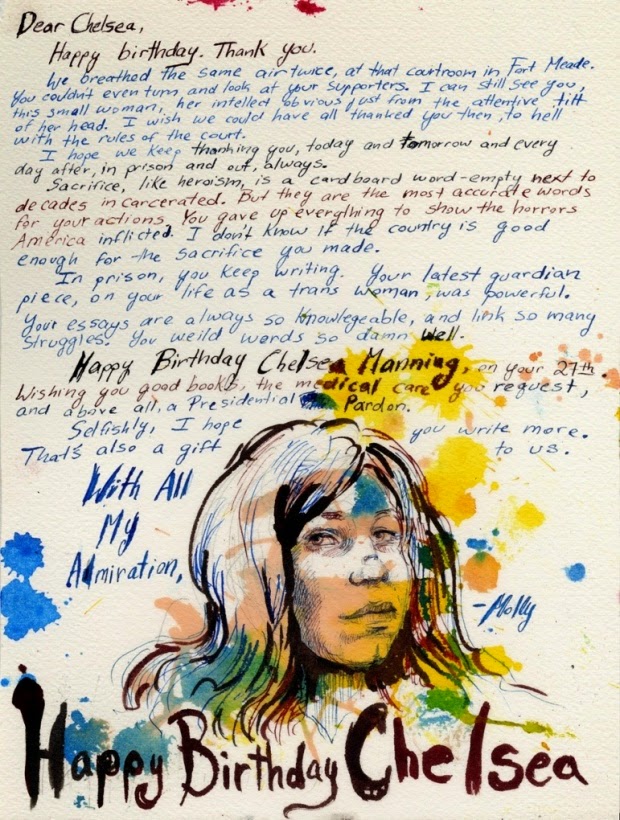 Dear Chelsea,
Happy birthday. Thank you.
We breathed the same air twice, at that courtroom in Fort Meade.
You couldn't even turn and look at your supporters. I can still see you,
this small woman, her intellect obvious just from the attentive tilt
of her head. I wish we could have all thanked you then, to hell
with the rules of the court.
I hope we keep thanking you, today and tomorrow and every
day after, in prison and out, always.
Sacrifice, like heroism, is a cardboard word-empty next to
decades incarcerated. But they are the most accurate words
for your actions. You gave up everything to show the horrors
America inflicted. I don't know if the country is good
enough for the sacrifice you made.
In prison, you keep writing. Your latest guardian
piece, on your life as a trans woman, was powerful.
Your essays are always so knowlegeable, and link so many
struggles. You weild words so damn well.
Happy Birthday Chelsea Manning, on your 27th.
Wishing you good books, the medical care you request,
and above all, a Presidential Pardon.
Selfishly, I hope you write more.
That's also a gift to us.
With All
My
Admiration,
-Molly
Happy Birthday Chelsea